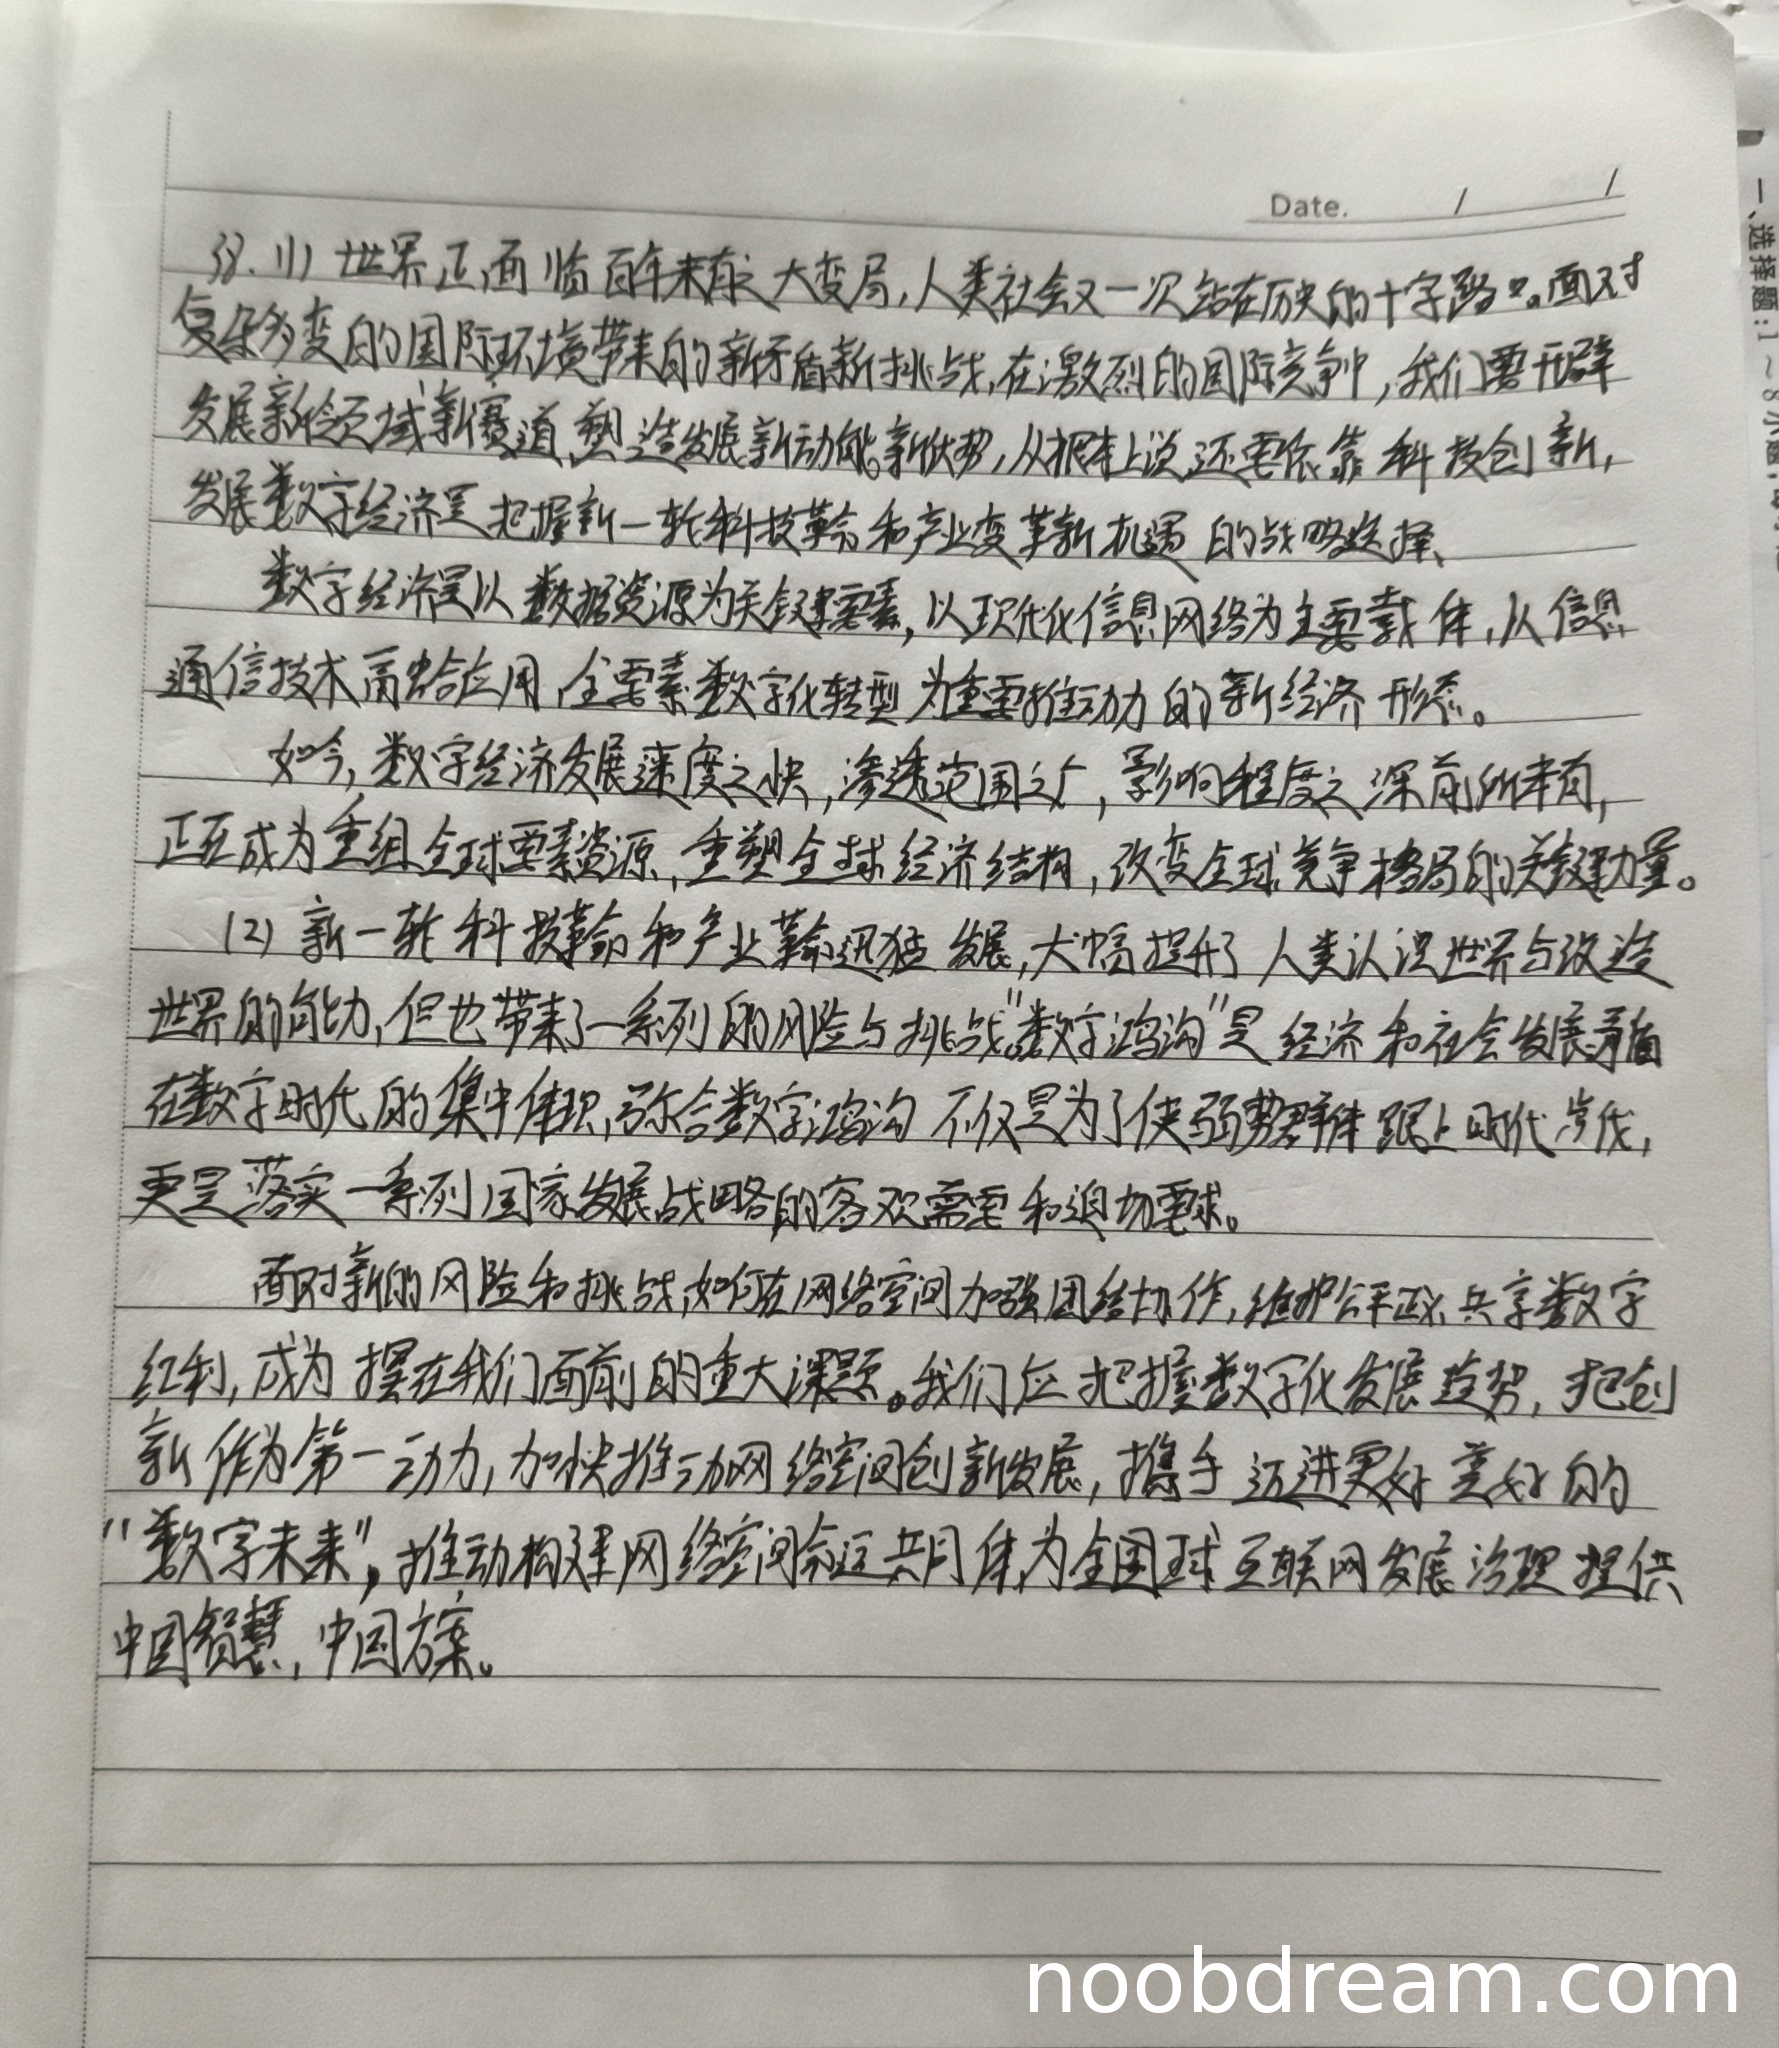 Date. / /
38. (1) 世界正面临百年未有之大变局,人类社会又一次站在历史的十字路口。面对
复杂多变的国际环境带来的新矛盾新挑战,在激烈的国际竞争中,我们要开辟
发展新领域新赛道,塑造发展新动能新优势,从根本上说,还要依靠科技创新,
发展数字经济是把握新一轮科技革命和产业变革新机遇的战略选择、
数字经济是以数据资源为关键要素,以现代化信息网络为主要载体,从信息
通信技术融合应用,全要素数字化转型为重要推动力的新经济形态。
如今,数字经济发展速度之快,渗透范围之广,影响程度之深前所未有,
正在成为重组全球要素资源,重塑全球经济结构,改变全球竞争格局的关键力量。
(2) 新一轮科技革命和产业革命迅猛发展,大幅提升了人类认识世界与改造
世界的能力,但也带来了一系列的风险与挑战。"数字鸿沟"是经济和社会发展矛盾
在数字时代的集中体现,弥合数字鸿沟不仅是为了使弱势群体跟上时代步伐,
更是落实一系列国家发展战略的客观需要和迫切要求。
面对新的风险和挑战,如何在网络空间加强团结协作,维护公平正义,共享数字
红利,成为摆在我们面前的重大课题。我们应把握数字化发展趋势,把创
新作为第一动力,加快推动网络空间创新发展,携手迈进更好美好的
"数字未来",推动构建网络空间命运共同体,为全国球互联网发展治理提供
中国智慧,中国方案。
一、选择题:1~8小题,
noobdream.com